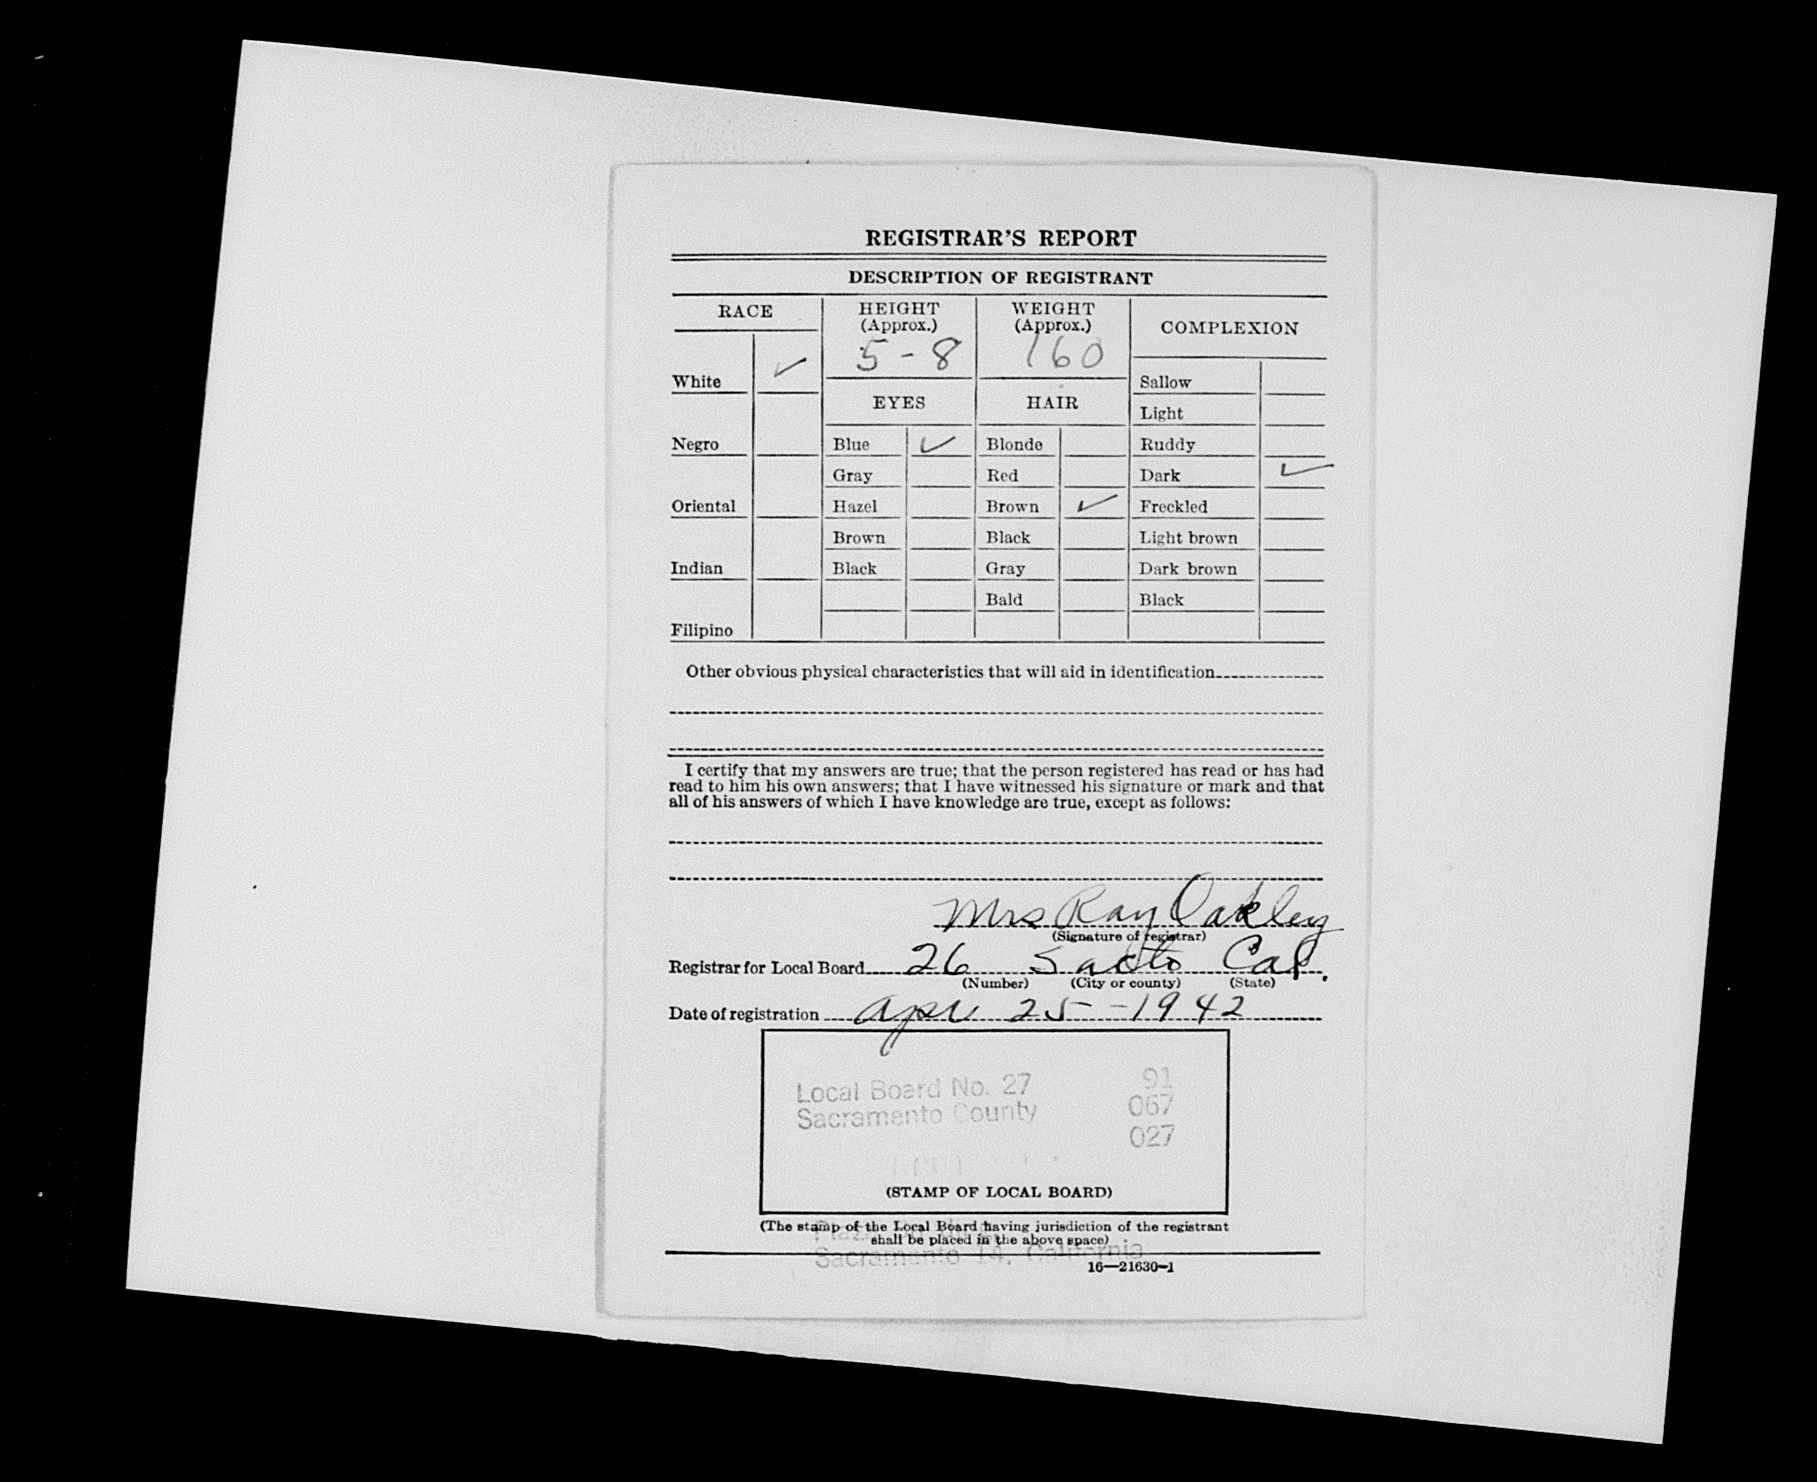 REGISTRAR'S REPORT
DESCRIPTION OF REGISTRANT
RACE
HEIGHT
(Approx.)
WEIGHT
(Approx.)
COMPLEXION
5-8
160
White ✓
Sallow
EYES
HAIR
Light
Negro
Blue ✓
Blonde
Ruddy
Gray
Red
Dark ✓
Oriental
Hazel
Brown ✓
Freckled
Brown
Black
Light brown
Indian
Black
Gray
Dark brown
Bald
Black
Filipino
Other obvious physical characteristics that will aid in identification
I certify that my answers are true; that the person registered has read or has had
read to him his own answers; that I have witnessed his signature or mark and that
all of his answers of which I have knowledge are true, except as follows:
Mrs Ray Oakley
(Signature of registrar)
Registrar for Local Board 26 Sacto Cal.
(Number) (City or county) (State)
Date of registration Apr 25-1942
Local Board No. 27 91
Sacramento County 067
027
(STAMP OF LOCAL BOARD)
(The stamp of the Local Board having jurisdiction of the registrant
shall be placed in the above space)
Sacramento 14, California
16—21630-1